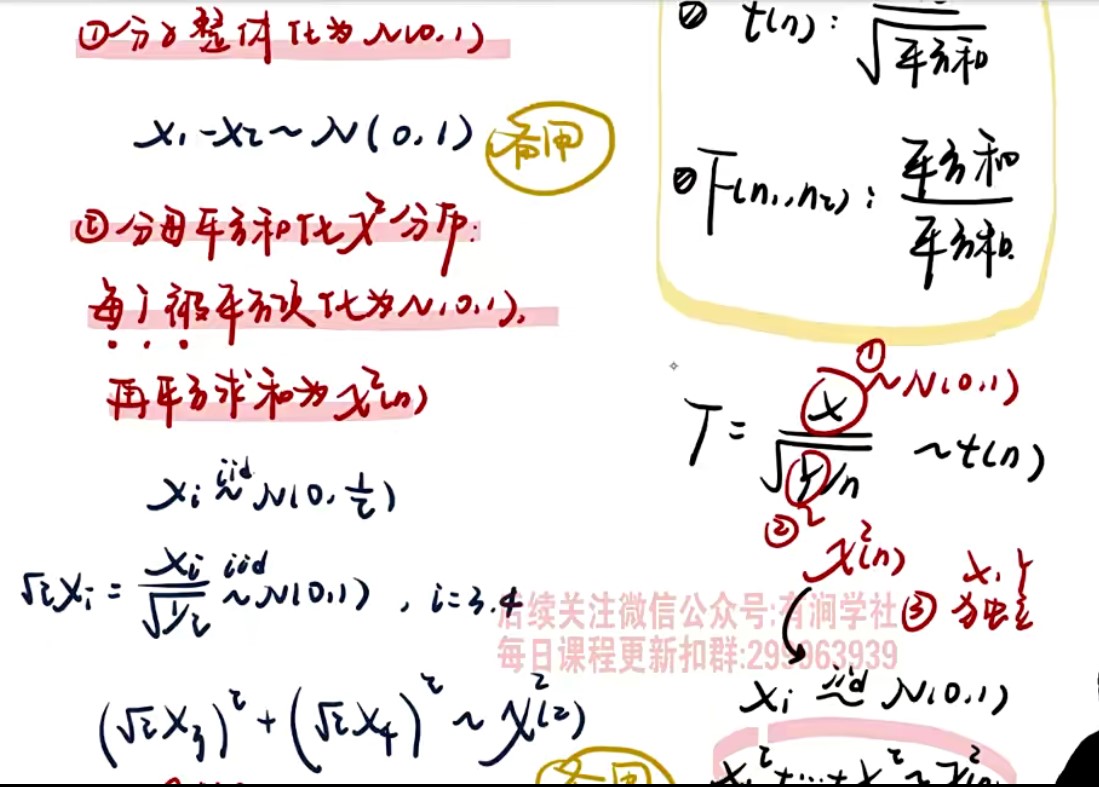 ①分子整体化为N(0,1)
X₁-X₂~N(0,1) 备用
②分母平方和化χ²分布:
每个被平方项化为N(0,1),
再平方求和为χ²(n)
Xᵢ iid~ N(0, 1/2)
√2Xᵢ = Xᵢ/√(1/2) iid~ N(0,1), i=3,4
(√2X₃)² + (√2X₄)² ~ χ²(2)
备用
t(n): √平方和
F(n₁,n₂): 平方和/平方和
①
T = X/√(Y/n) ~ t(n)
~N(0,1)
② χ²(n)
③ X,Y
为独立
Xᵢ iid~ N(0,1)
后续关注微信公众号:有涧学社
每日课程更新扣群:299063939